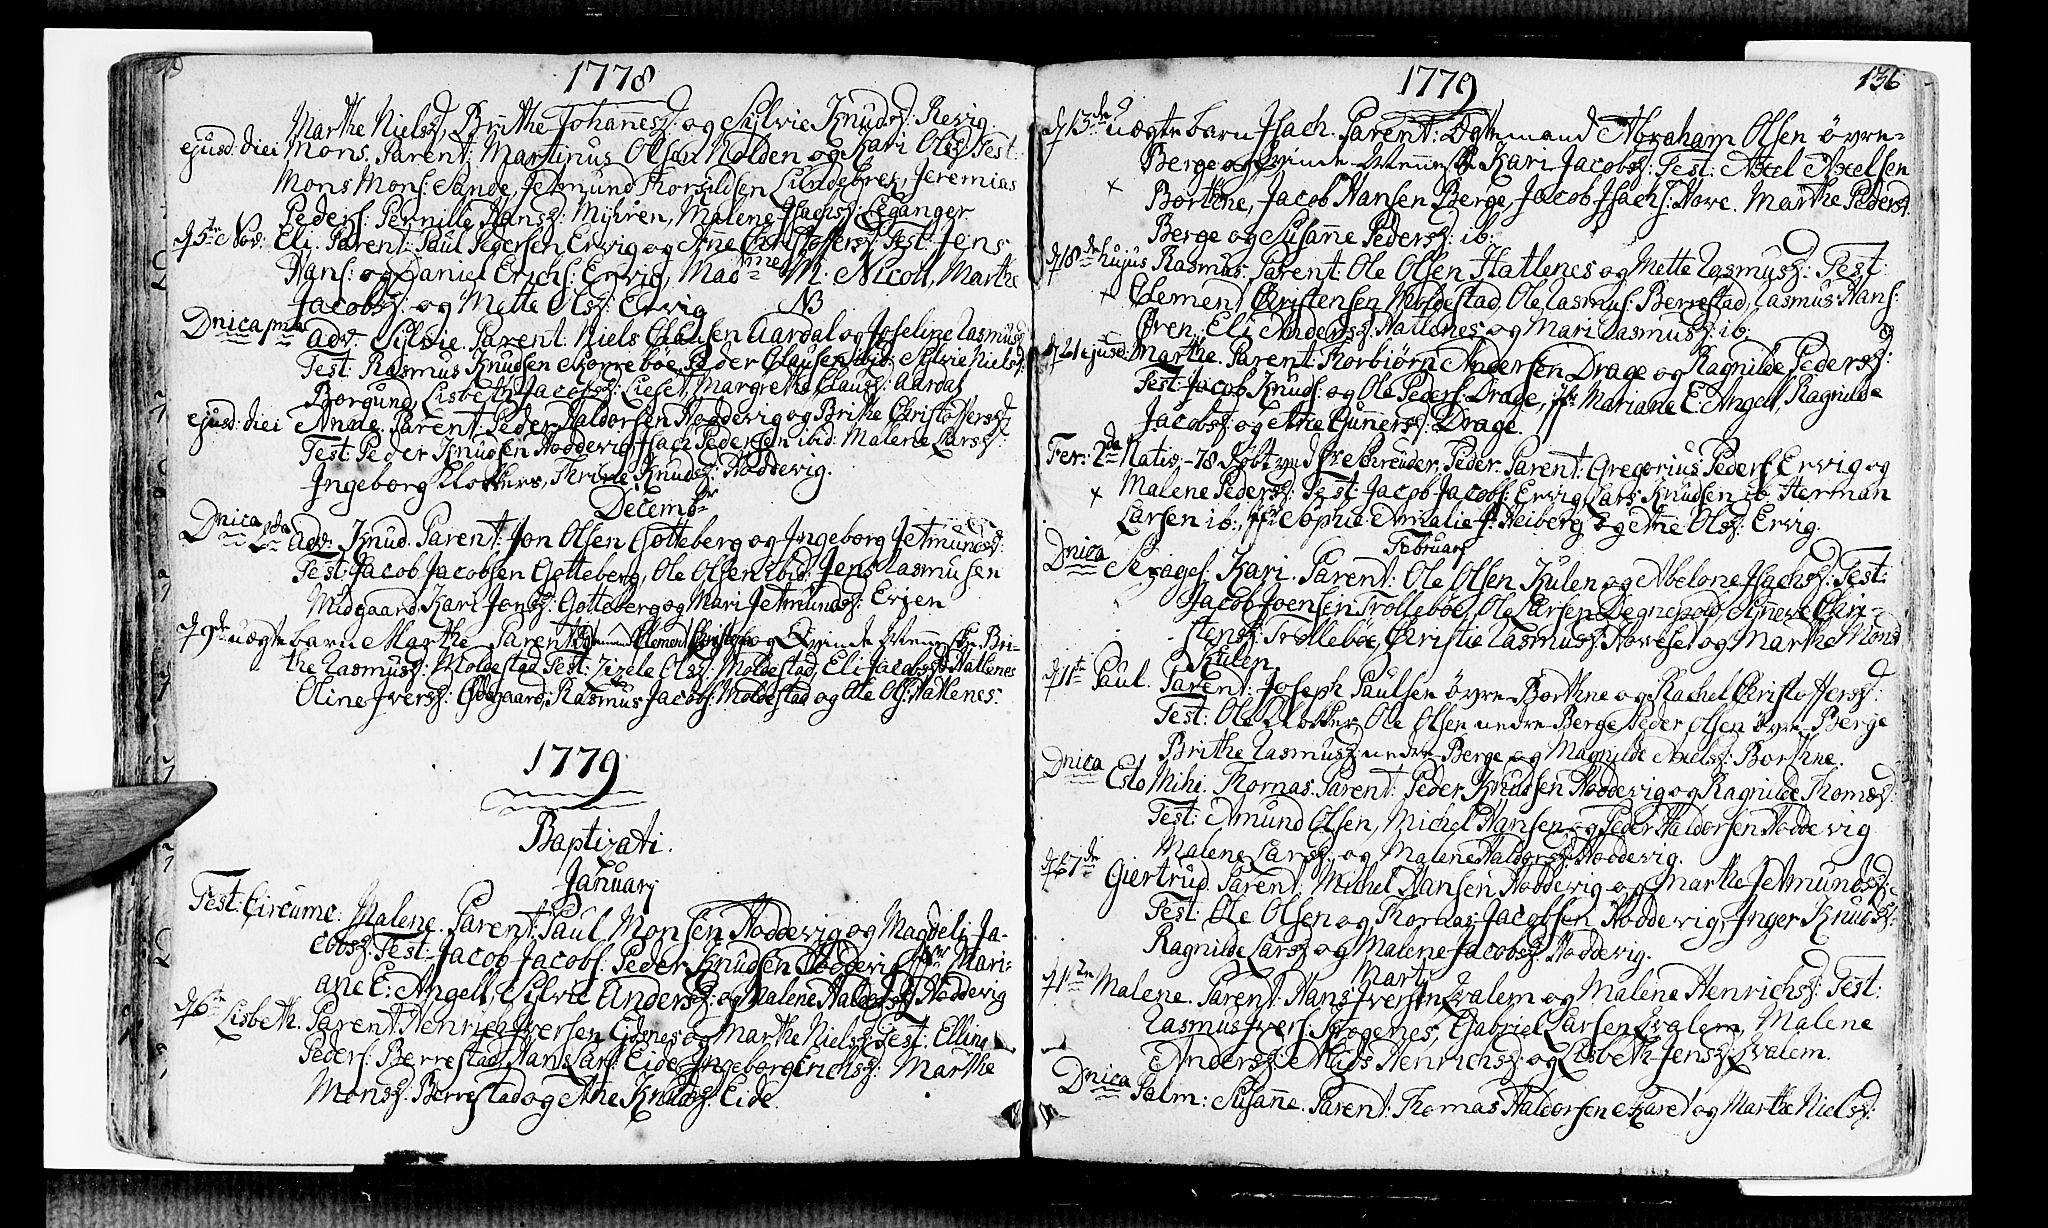 1778
Marthe Nielsd, Brithe Johannesd: og Sylvie Knudsd: Revig.
ejusd: diei Mons. Parent: Martinus Olsen Nolden og Kari Olesd Test:
Mons Mons: Sande, Jetmund Thorsildsen Lundebrek, Jeremias
Peders: Pernille Hansd: Myhren, Malene Isachsd: Leganger
d 5te Nov: Eli. Parent: Paul Pedersen Ervig og Anne Christoffersd: Test: Jens
Hans: og Daniel Erichs: Ervig, Madme M: Nicoll, Marthe
Jacobsd: og Mette Olsd: Ervig NB
Dnica pma Adv: Silvie. Parent: Niels Clausen Aardal og Joseline Rasmusd
Test: Rasmus Knudsen Morrebøe, Peder Clausen ibid: Sylvie Nielsd:
Borgund, Lisbeth Jacobsd: Liset, Margrethe Clausd: Aardal
ejusd: diei Anne. Parent: Peder Haldorsen Hoddevig og Brithe Christoffersd:
Test: Peder Knudsen Hoddevig, Isach Pedersen ibid: Malene Larsd:
Ingeborg Klokkers, Thrine Knudsd: Hoddevig.
Decembr
Dnica 2da Adv: Knud. Parent: Jon Olsen Gotteberg og Ingeborg Jetmundsd:
Test: Jacob Jacobsen Gotteberg, Ole Olsen ibid: Jens Rasmusen
Midgaard Kari Jonsd: Gotteberg og Mari Jetmundsd: Erzen
d 9de uægte barn Marthe Parent Clement Christens og Qvinde Mennesche Bri-
the Rasmusd: Moldestad Test: Zizele Olsd: Moldestad, Eli Jacobsd: Hatlenes
Oline Iversd: Ødegaard, Rasmus Jacobs: Moldestad og Ole Ols: Hatlenes.
1779
Baptizati.
Januarj
Fest: Circumc: Malene. Parent: Paul Monsen Hoddevig og Magdeli Ja-
cobsd: Test: Jacob Jacobs. Peder Knudsen Hoddevig Mari-
ane E: Angell, Silvie Andersd: og Malene Haldorsd Hoddevig
d 6te Lisbeth. Parent Henrich Iversen Eidsnes og Marthe Nielsd: Test: Elling
Peders: Berrestad, Hans Lars: Eide, Ingeborg Erichsd: Marthe
Monsd: Berrestad og Ane Knudsd: Eide.
1779
136
d 13de uægte barn Isach. Parent: Ægtemand Abraham Olsen øvre-
Berge og Qvinde Mennesche Kari Jacobsd: Test: Axel Axelsen
× Borthne, Jacob Hansen Berge, Jacob Isachs: Hove. Marthe Pedersd.
Berge og Susanne Pedersd: ib:
d 18de hujus Rasmus. Parent: Ole Olsen Hatlenes og Mette Rasmusd: Test:
× Clement Christensen Moldestad, Ole Rasmus: Berrestad, Rasmus Hans:
Øren, Eli Andersd: Hatlenes og Mari Rasmusd: ib:
d 21 ejusd: Marthe. Parent: Thorbiørn Andersen Drage og Ragnilde Pedersd:
Test: Jacob Knuds: og Ole Peders: Drage, Mariane E. Angell, Ragnilde
Jacobsd: og Ane Gunnersd: Drage.
Fer: 2da Nativ: -78 døbt ved Hr Schreuder, Peder. Parent: Gregorius Peders: Ervig og
× Malene Pedersd: Test: Jacob Jacobs: Ervig, Lars Knudsen ib, Herman
Larsen ib:, Sophie Amalie f: Heiberg og Ane Olsd: Ervig.
Februar
Dnica Sexages. Kari. Parent: Ole Olsen Kulen og Abelone Isachsd: Test:
Jacob Joensen Trolleboe, Ole Larsen Degnepold, Synneve Chri-
stensd: Trolleboe, Christie Rasmusd: Hovset og Marthe Monsd
Kulen
d 11te Paul. Parent: Joseph Paulsen øvre Borthne og Rachel Christoffersd:
Test: Ole Klokker, Ole Olsen nedre Berge, Peder Olsen øvre Berge
Brithe Rasmusd: nedre Berge og Magnilde Nielsd: Borthne.
Dnica Esto Mihi. Thomas. Parent: Peder Knudsen Hoddevig og Ragnilde Thomasd:
Test: Amund Olsen, Michel Hansen og Peder Haldorsen Hoddevig
Malene Larsd: og Malene Haldorsd: Hoddevig.
Giertrud. Parent, Michel Hansen Hoddevig og Marthe Jetmundsd:
Test: Ole Olsen og Thomas Jacobsen Hoddevig, Inger Knudsd:
Ragnilde Larsd og Malene Jacobsd: Hoddevig.
Martj
Malene. Parent: Hans Iversen Qvalem og Malene Henrichsd: Test:
Rasmus Ivers: Skogenes, Gabriel Larsen Qvalem, Malene
Andersd: Henrichsd: og Lisbeth Jensd: Qvalem.
Dnica Palm: Susanne. Parent: Thomas Haldorsen og Marthe Nielsd: